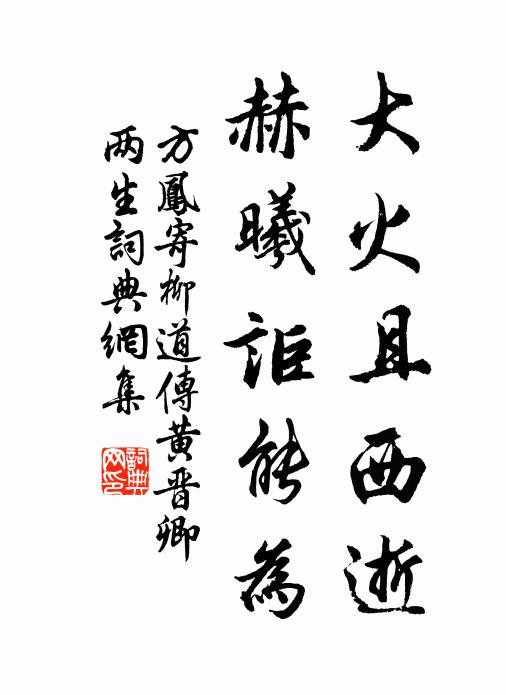 大火且西逝
赫曦詎能為
方鳳寄柳道傳黃晋卿
两生詞典網集
詞典网印